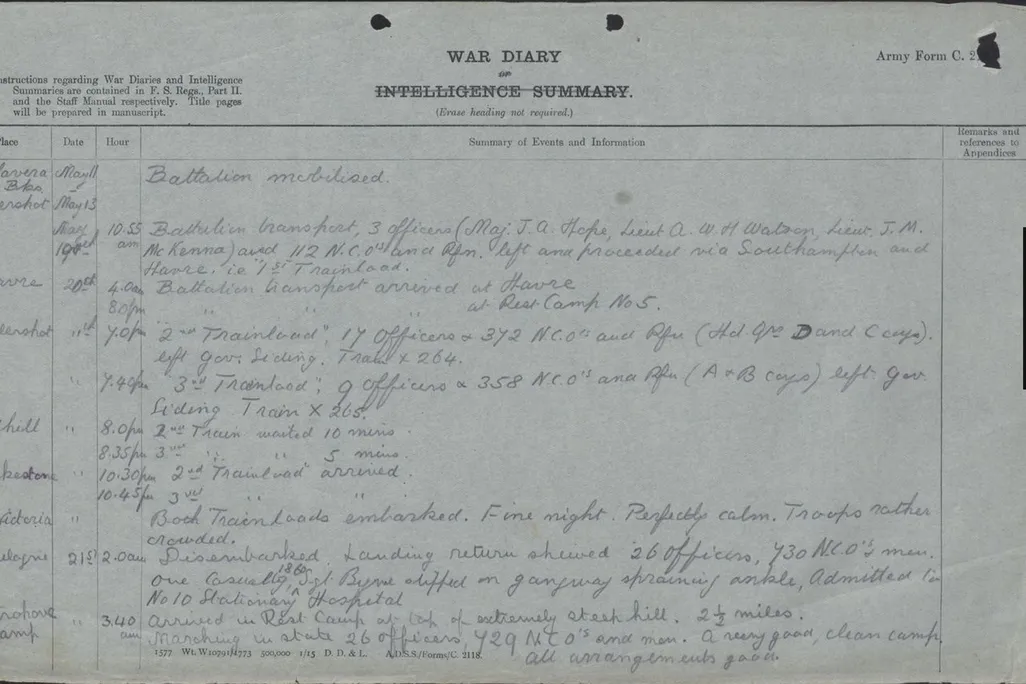 WAR DIARY
or
INTELLIGENCE SUMMARY.
(Erase heading not required.)
Army Form C. 2
nstructions regarding War Diaries and Intelligence
Summaries are contained in F. S. Regs., Part II.
and the Staff Manual respectively. Title pages
will be prepared in manuscript.
lace Date Hour Summary of Events and Information Remarks and references to Appendices
lavera May 11 Battalion mobilised.
Bks
ershot May 13
May 10.55 Battalion transport, 3 officers (Maj. J. A. Hope, Lieut A. W. H Watson, Lieut. J. M.
19th am McKenna) and 112 N.C.O's and Rfn. left and proceeded via Southampton and
Havre, i.e "1st Trainload.
avre 20th 4.0am Battalion transport arrived at Havre
8.0pm " " " at Rest Camp No 5.
ershot " 7.0pm "2nd Trainload", 17 Officers & 372 N.C.O's and Rfn (Hd. Qrs D and C coys).
left Gov: Siding. Train X 264.
" 7.40pm "3rd Trainload", 9 Officers & 358 N.C.O's and Rfn (A & B coys) left Gov
Siding Train X 265.
hill " 8.0pm 2nd Train waited 10 mins.
8.35pm 3rd " " 5 mins.
kestone " 10.30pm 2nd Trainload" arrived.
10.45pm 3rd " "
ictoria " Both Trainloads embarked. Fine night. Perfectly calm. Troops rather
crowded.
ulogne 21st 2.0am Disembarked Landing return shewed 26 officers, 730 N.C.O's men.
One Casualty, Sgt Byrne slipped on gangway spraining ankle, Admitted to
No 10 Stationary Hospital
trohove " 3.40 arrived in Rest Camp at top of extremely steep hill. 2½ miles.
amp am Marching in state 26 officers, 729 N.C.O's and men. A very good, clean camp,
all arrangements good.
1577 Wt. W10791/1773 500,000 1/15 D. D. & L. A.D.S.S./Forms/C. 2118.